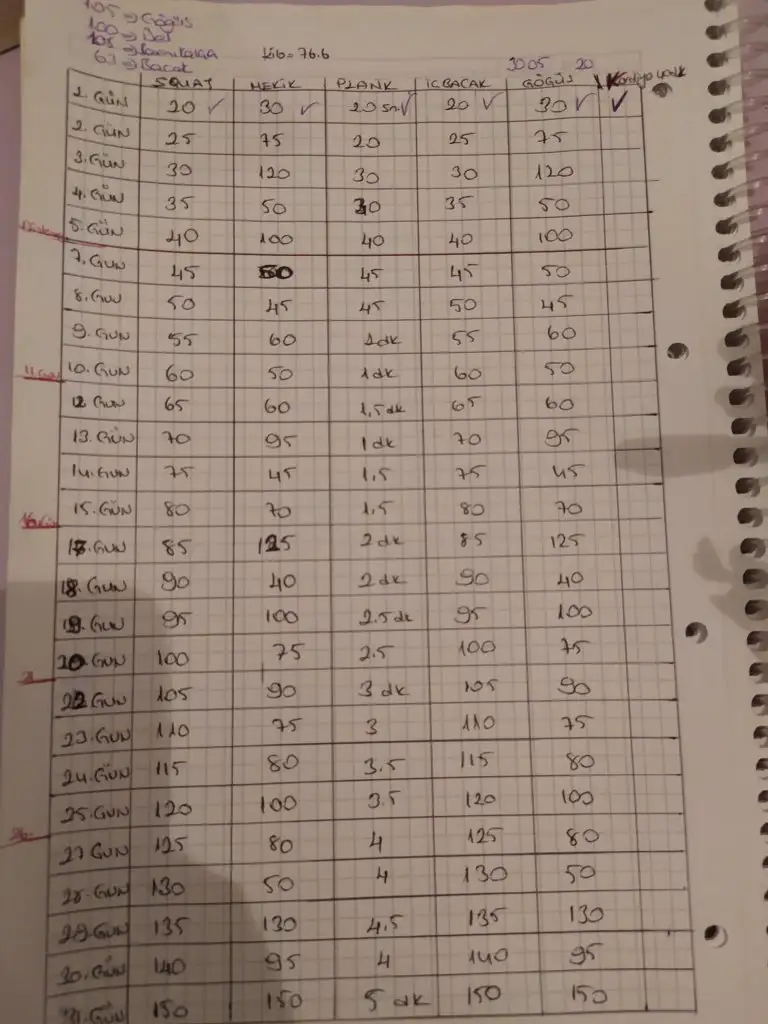 105 → Göğüs
100 → Bel
105 →
63 → Bacak
kilo = 76.6
30 05 20
SQUAT MEKİK PLANK İÇ BACAK GÖĞÜS Kardiyo
1. GÜN 20 ✓ 30 ✓ 20 sn ✓ 20 ✓ 30 ✓ ✓
2. GÜN 25 75 20 25 75
3. GÜN 30 120 30 30 120
4. GÜN 35 50 30 35 50
5. GÜN 40 100 40 40 100
7. GUN 45 50 45 45 50
8. GUN 50 45 45 50 45
9. GUN 55 60 1 dk 55 60
11. Gün
10. GUN 60 50 1 dk 60 50
12 GUN 65 60 1,5 dk 65 60
13. GÜN 70 95 1 dk 70 95
14. GUN 75 45 1.5 75 45
15. GÜN 80 70 1.5 80 70
16. Gün
17. GUN 85 125 2 dk 85 125
18. GUN 90 40 2 dk 90 40
19. GUN 95 100 2.5 dk 95 100
20. GUN 100 75 2.5 100 75
21
22 GUN 105 90 3 dk 105 90
23. GUN 110 75 3 110 75
24. GÜN 115 80 3.5 115 80
25. GUN 120 100 3.5 120 100
26.
27 GUN 125 80 4 125 80
28. GUN 130 50 4 130 50
29. GUN 135 130 4.5 135 130
30. GÜN 140 95 4 140 95
31. GÜN 150 150 5 dk 150 150